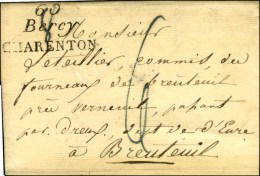 60
Bercy
CHARENTON
Monsieur
Letellier, commis du
fourneau de breuteuil
près verneuil, passant
par Dreux, dept de d'Eure
a Breuteuil